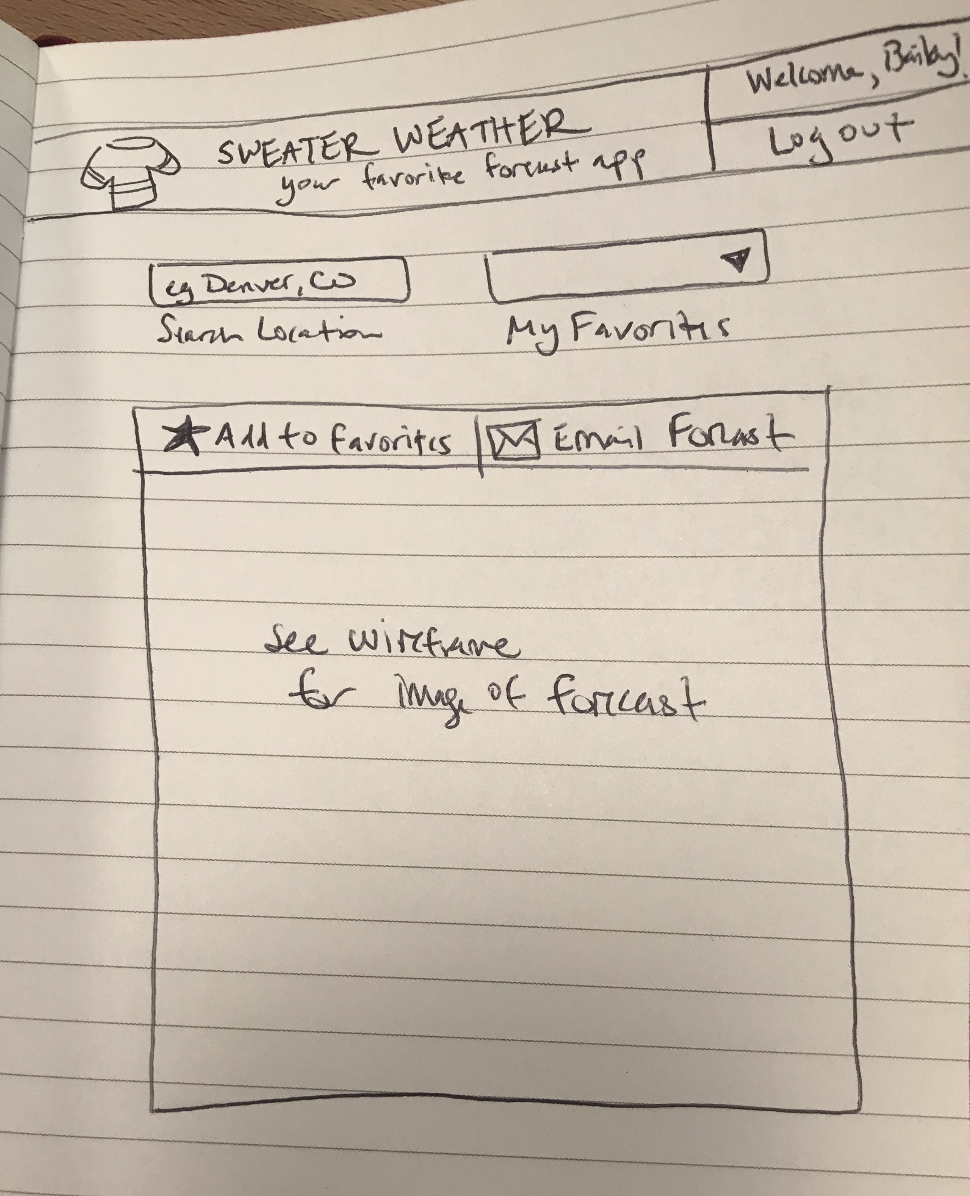 Welcome, Bailey!
SWEATER WEATHER
your favorite forcast app
Log out
eg Denver, CO
Search Location
My Favorites
Add to favorites
Email Forcast
See wireframe
for image of forcast